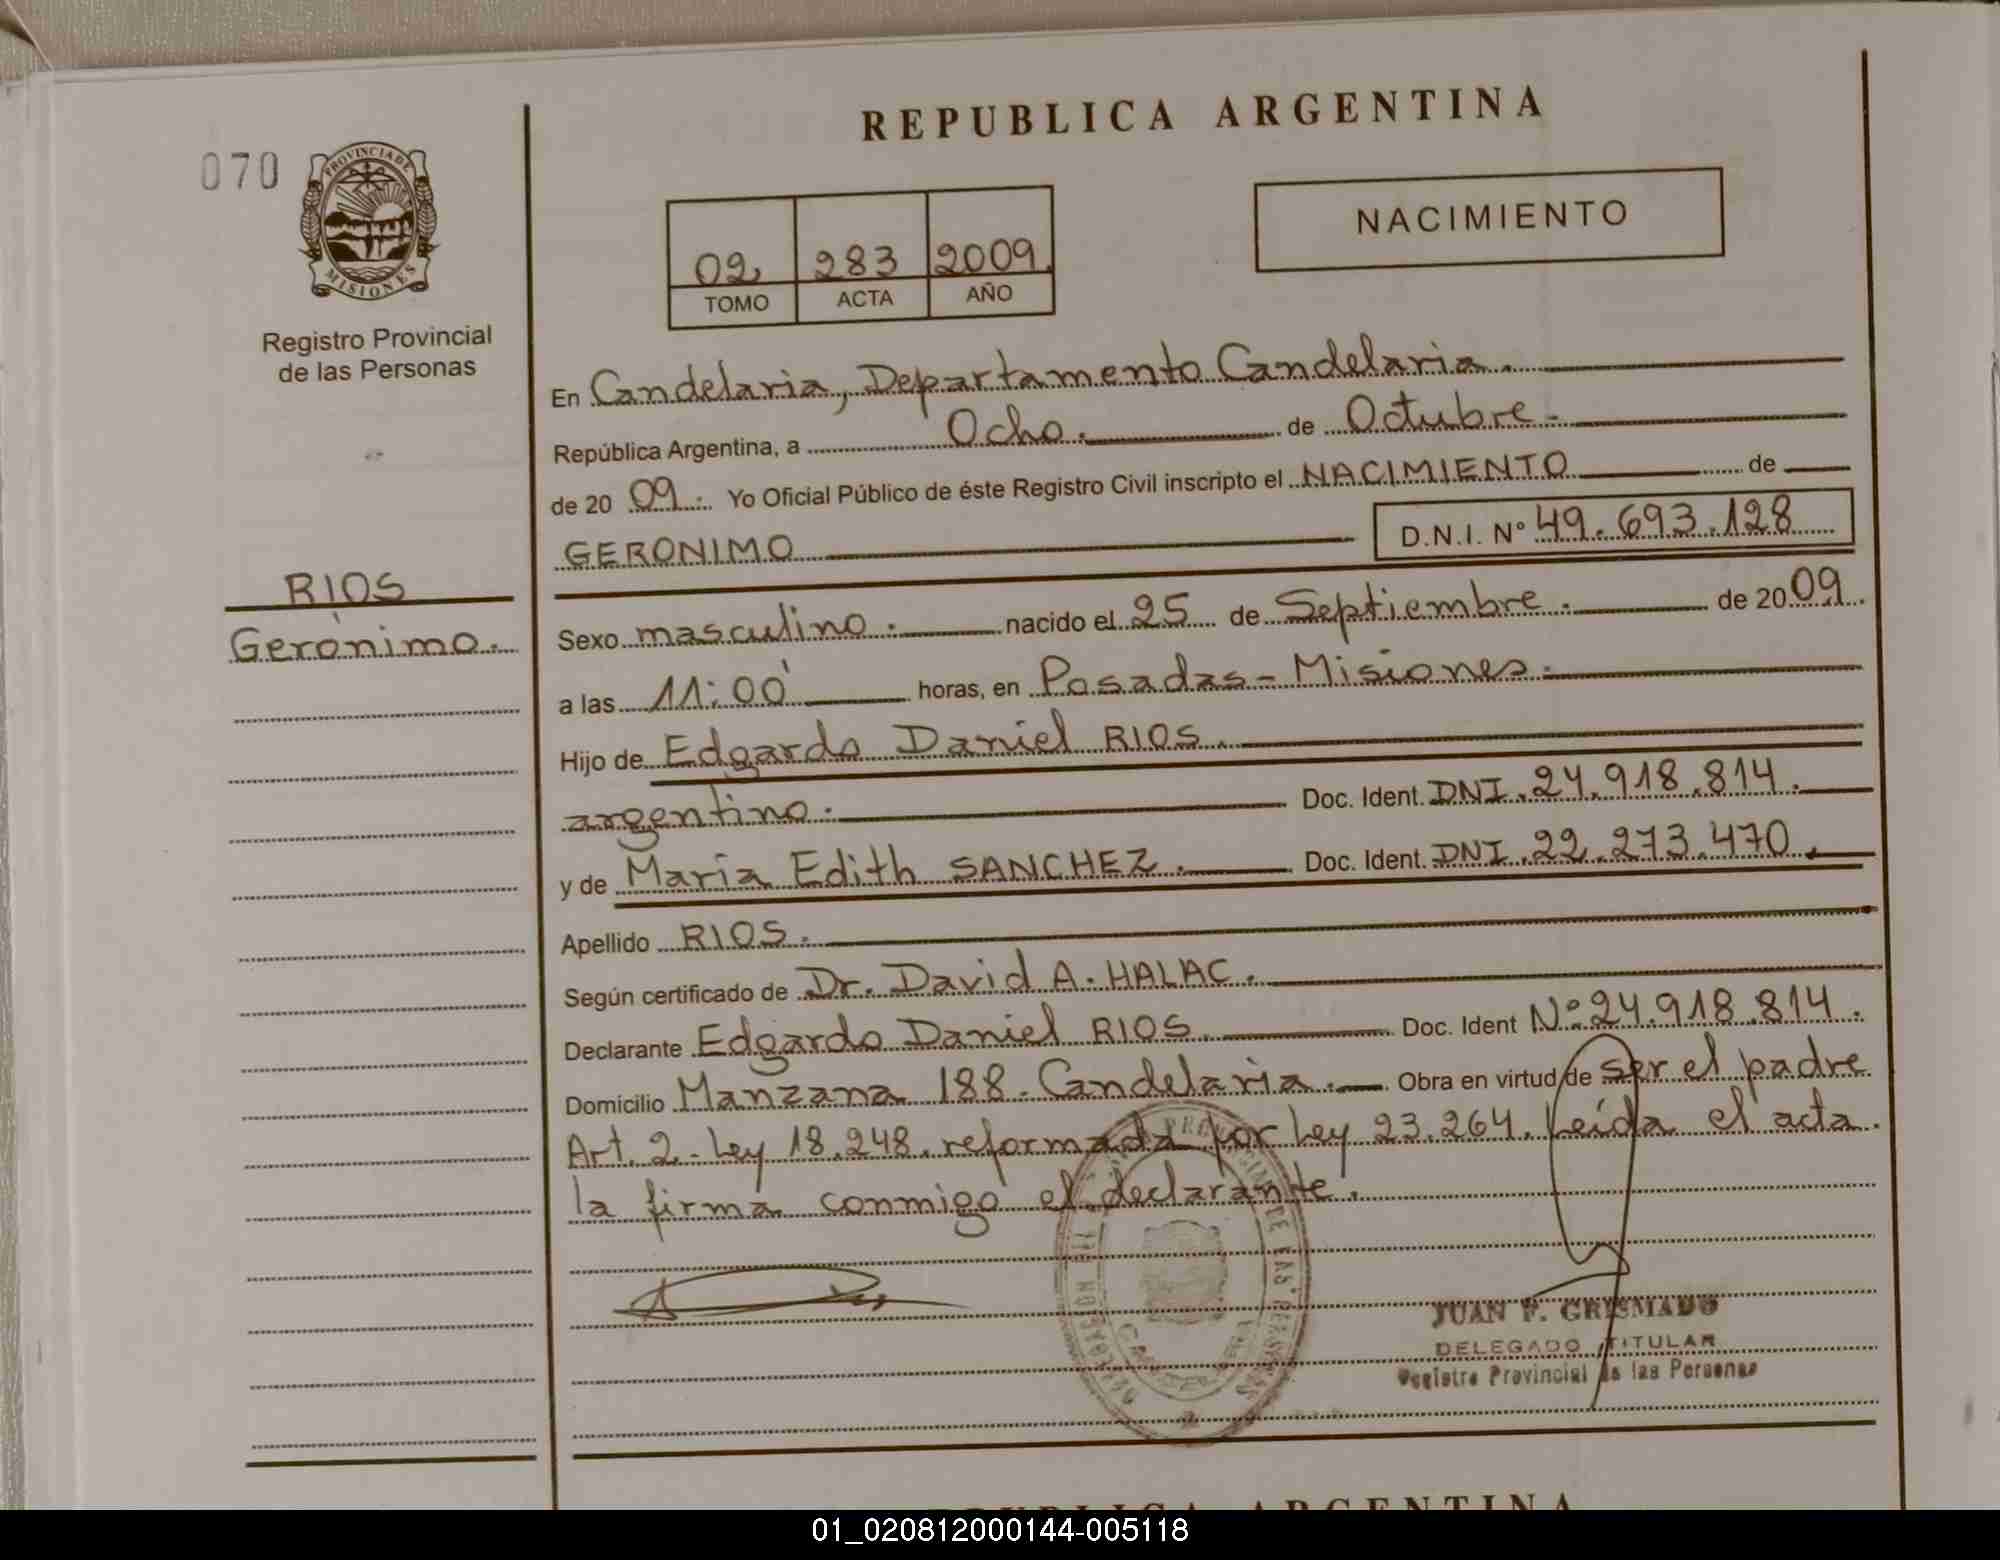 REPUBLICA ARGENTINA
070
PROVINCIA DE
MISIONES
Registro Provincial
de las Personas
RIOS
Gerónimo.
02 283 2009.
TOMO ACTA AÑO
NACIMIENTO
En Candelaria, Departamento Candelaria.
República Argentina, a Ocho. de Octubre.
de 20 09. Yo Oficial Público de éste Registro Civil inscripto el NACIMIENTO de
GERONIMO D.N.I. Nº 49.693.128
Sexo masculino. nacido el 25 de Septiembre. de 20 09.
a las 11:00' horas, en Posadas - Misiones.
Hijo de Edgardo Daniel RIOS.
argentino. Doc. Ident. DNI. 24.918.814.
y de María Edith SANCHEZ. Doc. Ident. DNI. 22.273.470.
Apellido RIOS.
Según certificado de Dr. David A. HALAC.
Declarante Edgardo Daniel RIOS. Doc. Ident Nº 24.918.814.
Domicilio Manzana 188. Candelaria. Obra en virtud de ser el padre
Art. 2 - Ley 18.248. reformada por Ley 23.264. Leída el acta.
la firma conmigo el declarante.
JUAN F. GRISMADO
DELEGADO TITULAR
Registro Provincial de las Personas
REPUBLICA ARGENTINA
01_020812000144-005118